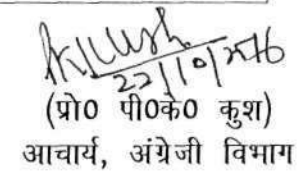 22/10/2016
(प्रो0 पी0के0 कुश)
आचार्य, अंग्रेजी विभाग